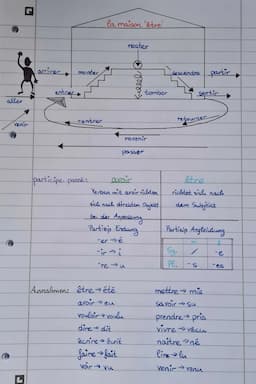 la maison "être"
rester
arriver
monter
descendre
partir
entrer
tomber
sortir
aller
rentrer
retourner
revenir
passer
participe passé: avoir être
Verben mit avoir richten richtet sich nach
sich nach direktem Objekt dem Subjekt
bei der Anpassung
Particip Endung Particip Angleichung
-er → é
-ir → i Sg. / -e
-re → u Pl. -s -es
Ausnahmen: être → été mettre → mis
avoir → eu savoir → su
vouloir → voulu prendre → pris
dire → dit vivre → vécu
écrire → écrit naître → né
faire → fait lire → lu
voir → vu venir → venu